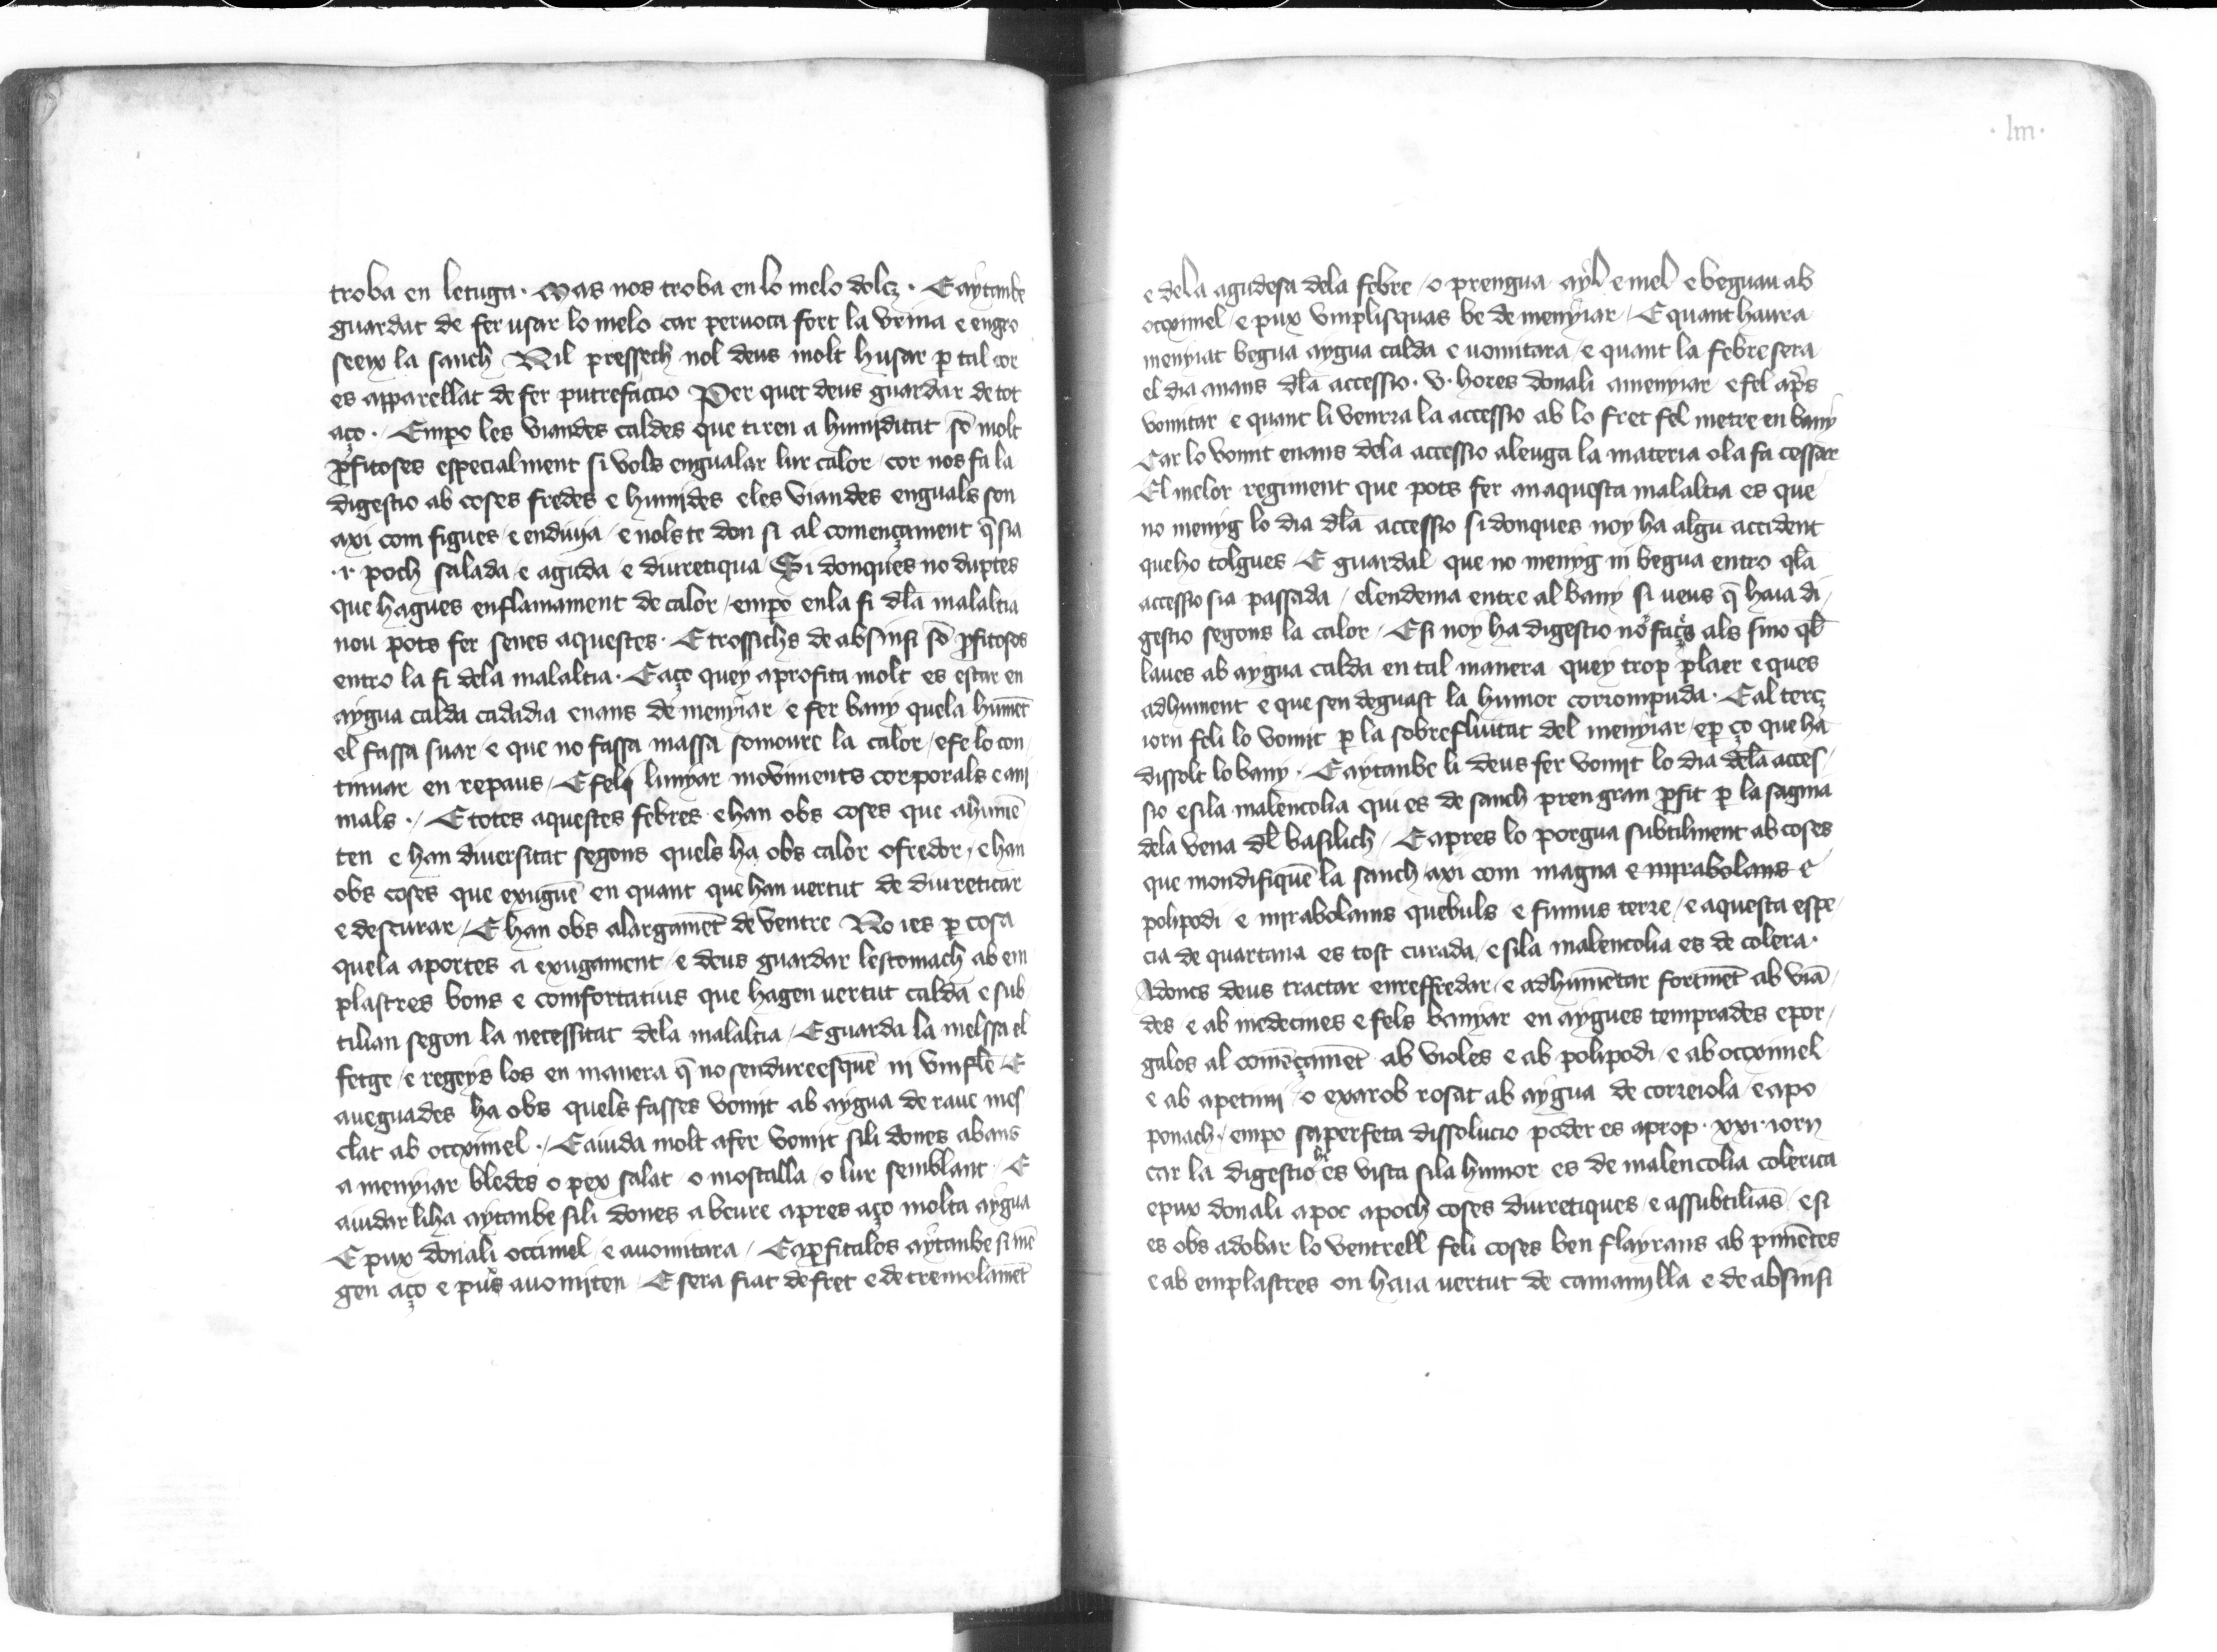 troba en letuga · Mas nos troba en lo melo dolç · E aytanbe
guardat de fer usar lo melo car peruoca fort la vrina e engro
seex la sanch Nil pressech nol deus molt husar p tal cor
es apparellat de fer putrefaccio Per quet deus guardar de tot
aço · Empo les viandes caldes que tiren a humiditat sō molt
pfitoses especialment si vols engualar lur calor / cor nos fa la
digestio ab coses fredes e humides e les viandes enguals son
axi com figues / e enduuja / e nols te don si al començament q̄ sia
· i · poch salada / e aguda / e diuretiqua / Si donques no duptes
que hagues enflamament de calor / empo en la fi dla malaltia
nou pots fer senes aquestes · E trossichs de absinsi sō pfitoses
entro la fi dela malaltia · E aço quey aprofita molt es estar en
aygua calda cadadia enans de menyiar / e fer bany quela humēt
el fassa suar / e que no fassa massa somoure la calor / e fe lo con
tinuar en repaus / E feli lunyar mouiments corporals e ani
mals · / E totes aquestes febres e han obs coses que ahumē
ten e han diuersitat segons quels ha obs calor o fredor / e han
obs coses que exuguē en quant que han vertut de diureticar
e descurar / E han obs alargamēt de ventre No ies p cosa
quela aportes a exugament / e deus guardar lestomach ab em
plastres bons e comfortatius que hagen vertut calda e sub
tilian segon la necessitat dela malaltia / E guarda la melssa el
fetge / e regeys los en manera q̄ no sendureesquē ni vnflē / E
aueguades ha obs quels fasses vomit ab aygua de raue mes
clat ab occximel · / E aiuda molt afer vomit sili dones abans
a menyiar bledes o pex salat / o mostalla / o lur semblant / E
aiudar liha aytanbe sili dones a beure apres aço molta aygua
E pux donali occimel / e auomitara / E apfitalos aytanbe si mē
gen aço e puys auomiten / E sera fiat de fret e de tremolamēt
· liii ·
e dela agudesa dela febre / o prengua ayl e mel e beguau ab
occximel / e pux vmplisquas be de menyiar / E quant haura
menyiat begua aygua calda e vomitara / e quant la febre sera
el dia auans dla accessio · v · hores donali a menyiar e fel ap̄s
vomitar e quant li venrra la accessio ab lo fret fel metre en bany
Car lo vomit enans dela accessio aleuga la materia o la fa cessar
El melor regiment que pots fer an aquesta malaltia es que
no menyg lo dia dla accessio si donques noy ha algū accident
queho tolgues / E guardal que no menyg ni begua entro q̄ la
accessio sia passada / e lendema entre al bany si veus q̄ haia di /
gestio segons la calor / E si noy ha digestio no façs als sino q̄l
laues ab aygua calda en tal manera quey trop plaer e ques
adhument e que sen deguast la humor corrompuda · E al terç
iorn feli lo vomit p la sobrefluitat del menyiar / e p ço que ha
dissolt lo bany · E aytanbe li deus fer vomit lo dia dela acces /
sio e si la malencolia qui es de sanch pren gran pfit p la sagnia
dela vena dl basilich / E apres lo porgua subtilment ab coses
que mondifiquē la sanch axi com magna e mirabolans e
polipodi / e mirabolans quebuls / e fumus terre / e aquesta espe /
cia de quartana es tost curada / e si la malencolia es de colera ·
Adoncs deus tractar enreffredar / e adhumētar fortmēt ab viā /
des / e ab medecines e fels banyar en aygues temprades e por /
galos al comēçamēt ab violes e ab polipodi / e ab occximel
e ab apetimi / o exarob rosat ab aygua de correiola / e apo
ponach · / empo sa perfeta dissolucio poder es aprop · xxi · iorn
car la digestio li es vista si la humor es de malencolia colerica
e pux donali a poc a poch coses diuretiques / e assubtilians / e si
es obs adobar lo ventrell feli coses ben flayrans ab pimētes
e ab emplastres on haia vertut de camamylla e de absinsi